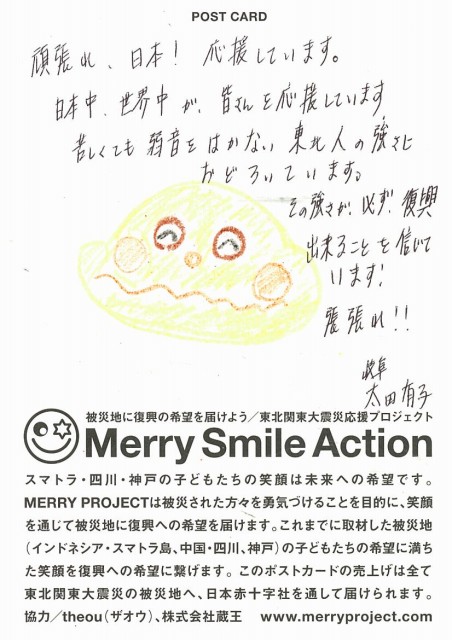 POST CARD
頑張れ、日本！ 応援しています。
日本中、世界中が、皆さんを応援しています
苦しくても弱音をはかない東北人の強さに
おどろいています。
その強さが、必ず、復興
出来ることを信じて
います！
張張れ!!
岐阜
太田有子
被災地に復興の希望を届けよう／東北関東大震災応援プロジェクト
Merry Smile Action
スマトラ・四川・神戸の子どもたちの笑顔は未来への希望です。
MERRY PROJECTは被災された方々を勇気づけることを目的に、笑顔
を通じて被災地に復興への希望を届けます。これまでに取材した被災地
（インドネシア・スマトラ島、中国・四川、神戸）の子どもたちの希望に満ち
た笑顔を復興への希望に繋げます。このポストカードの売上げは全て
東北関東大震災の被災地へ、日本赤十字社を通して届けられます。
協力／theou（ザオウ）、株式会社蔵王 www.merryproject.com